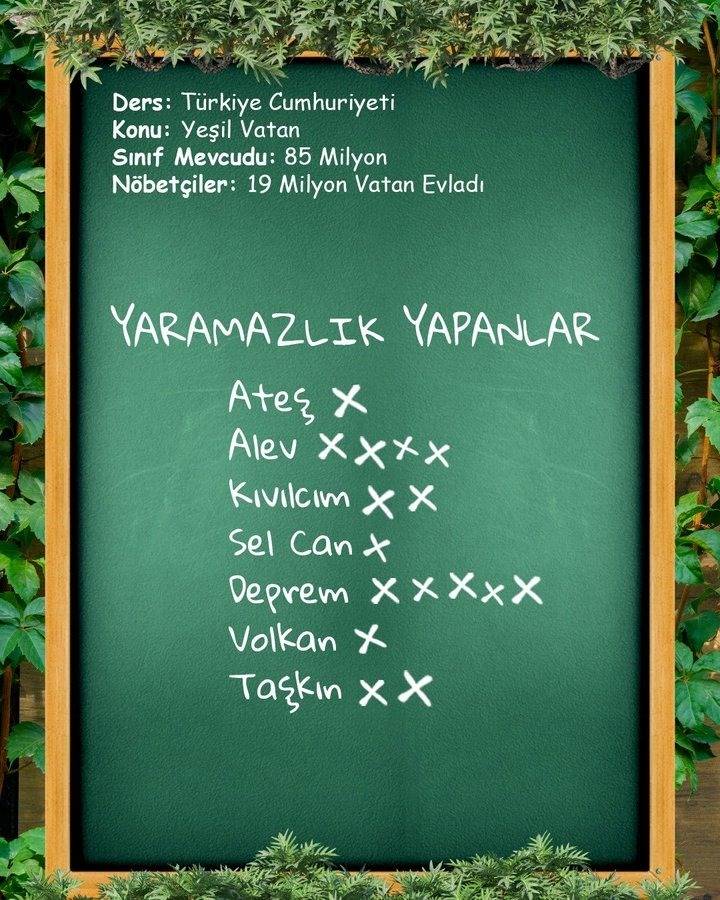 Ders: Türkiye Cumhuriyeti
Konu: Yeşil Vatan
Sınıf Mevcudu: 85 Milyon
Nöbetçiler: 19 Milyon Vatan Evladı
YARAMAZLIK YAPANLAR
Ateş X
Alev X X X X
Kıvılcım X X
Sel Can X
Deprem X X X X X
Volkan X
Taşkın X X